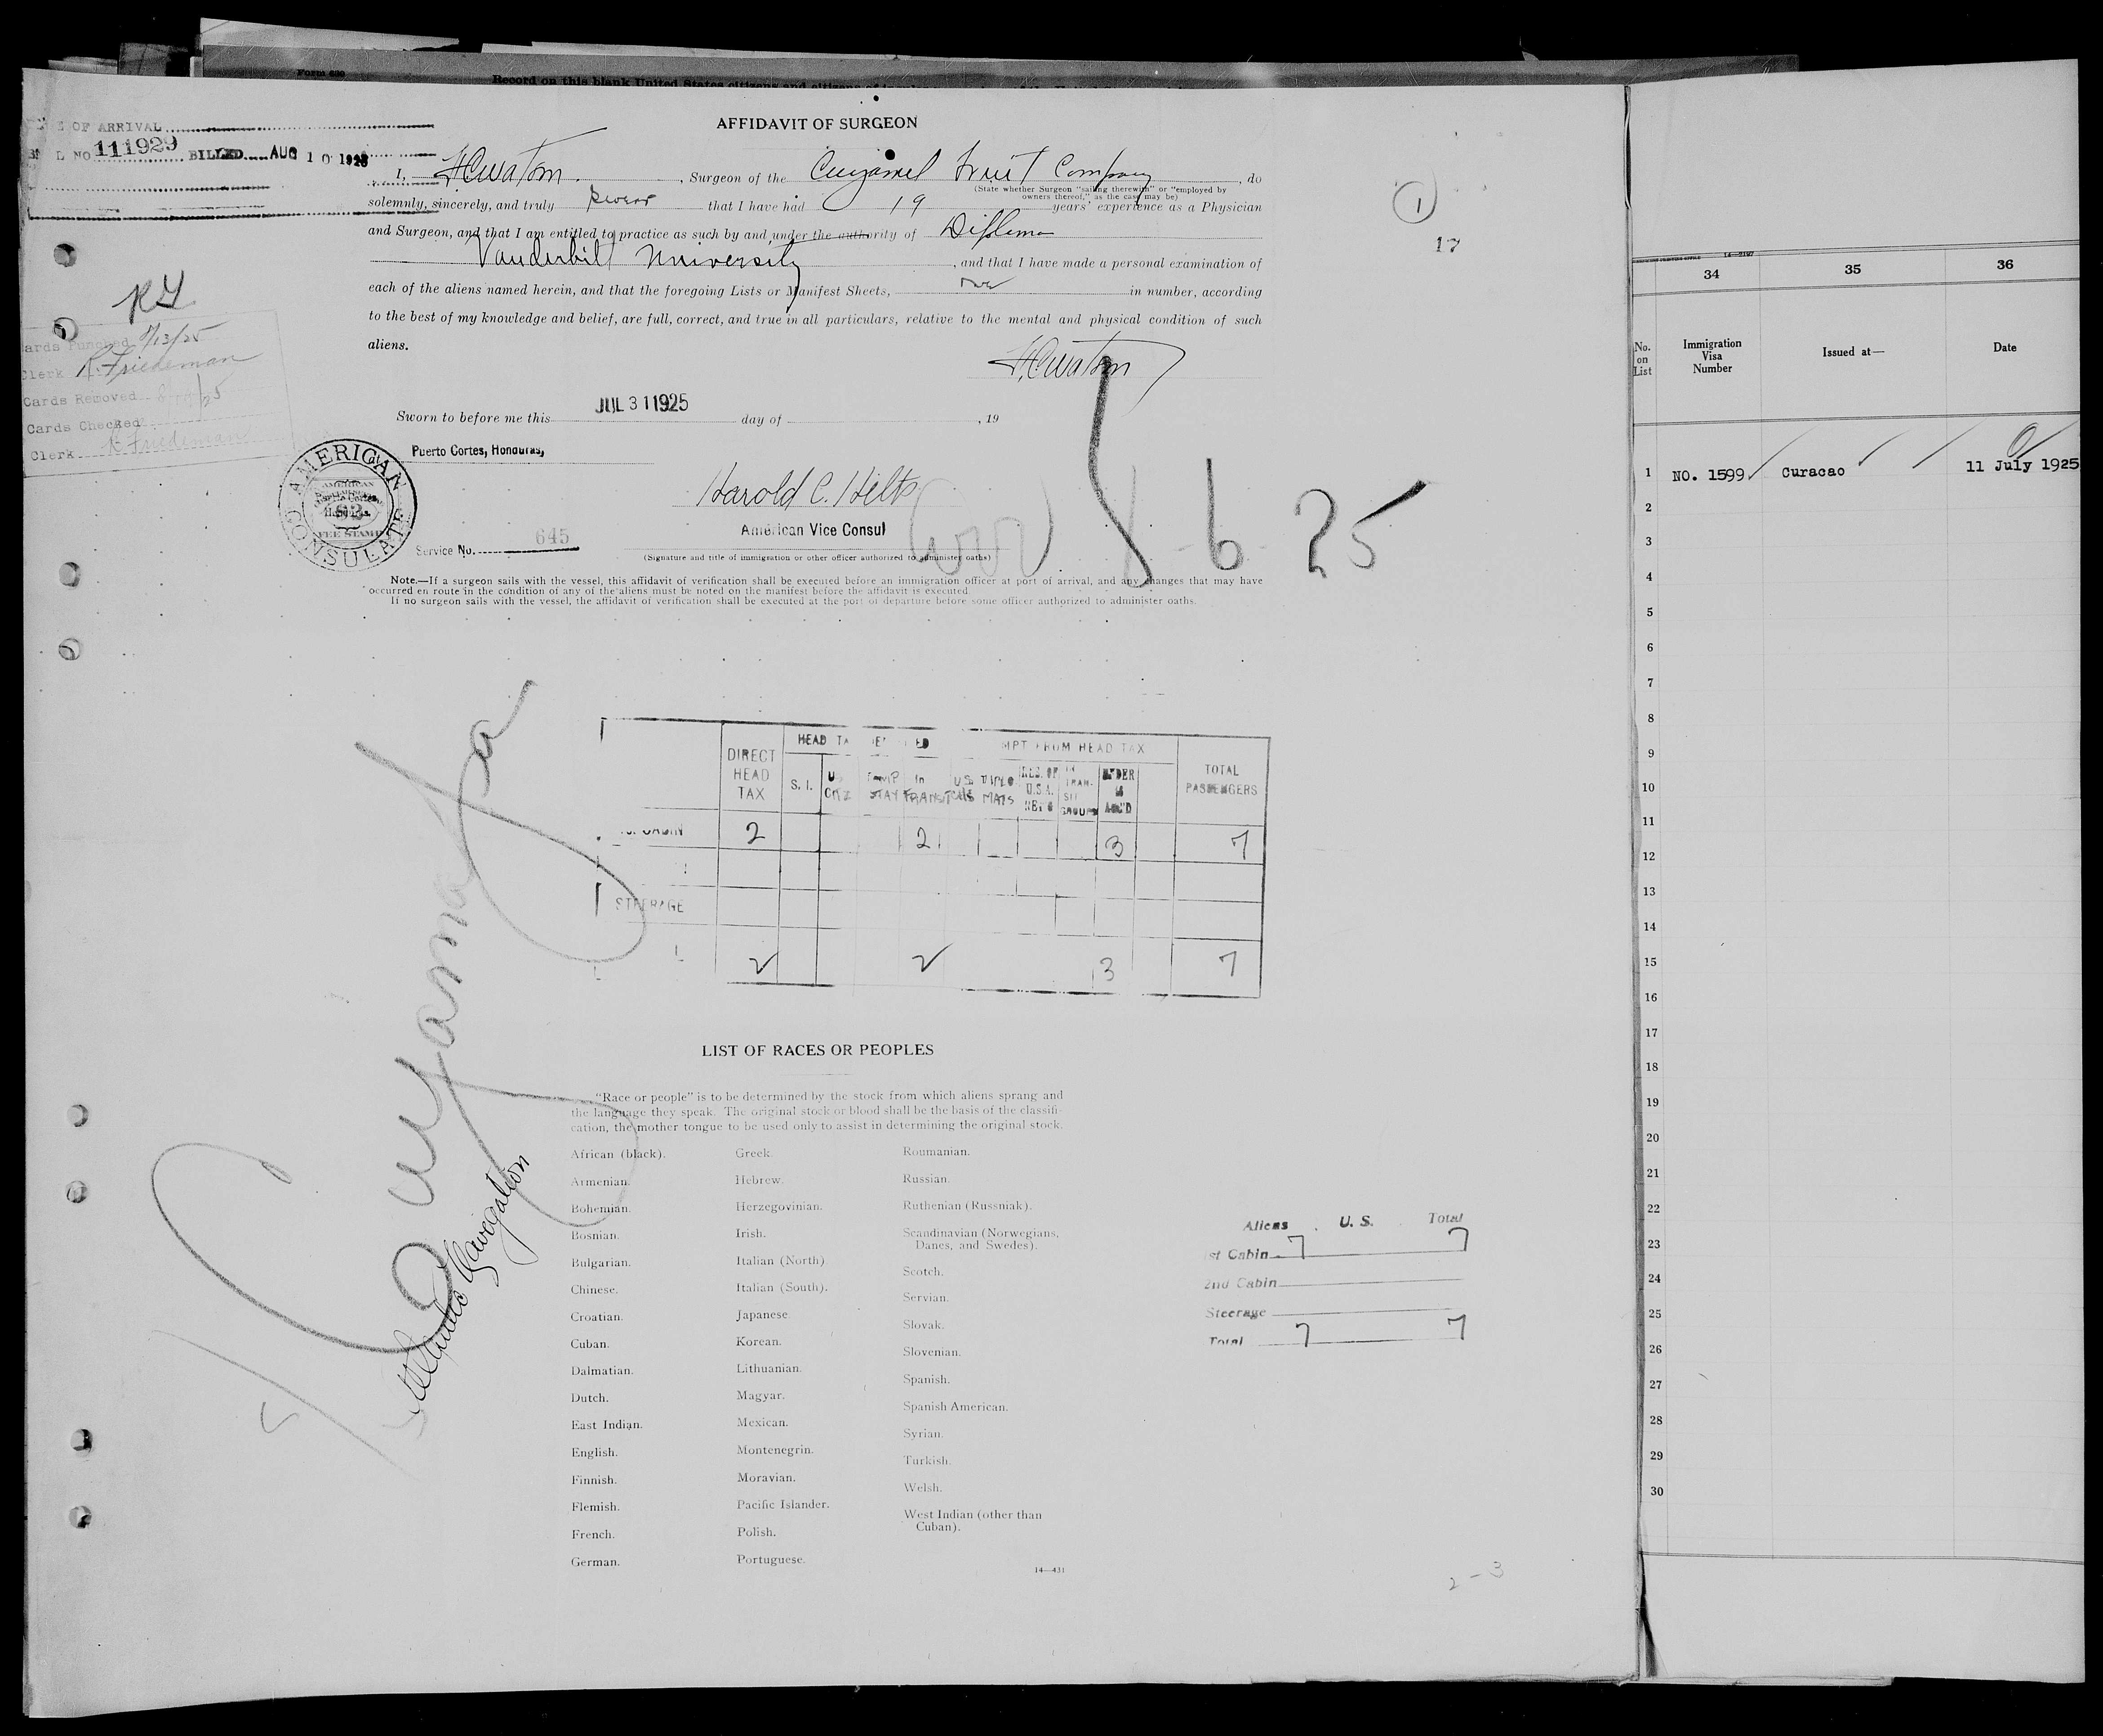 Form 630
Record on this blank United States citizens and citizens of
OF ARRIVAL
NO 111929 BILLED AUG 10 1925
AFFIDAVIT OF SURGEON
I, , Surgeon of the Cuyamel Fruit Company, do
(State whether Surgeon "sailing therewith" or "employed by
owners thereof," as the case may be)
solemnly, sincerely, and truly swear that I have had 19 years' experience as a Physician
and Surgeon, and that I am entitled to practice as such by and under the authority of Diploma
Vanderbilt University, and that I have made a personal examination of
each of the aliens named herein, and that the foregoing Lists or Manifest Sheets, one in number, according
to the best of my knowledge and belief, are full, correct, and true in all particulars, relative to the mental and physical condition of such
aliens.
1
17
Cards Punched 8/13/25
Clerk R. Friedeman
Cards Removed
Cards Checked
Clerk R. Friedeman
Sworn to before me this JUL 31 1925 day of , 19
Puerto Cortes, Honduras,
AMERICAN CONSULATE
Harold C. Hilts
American Vice Consul
Service No. 645
(Signature and title of immigration or other officer authorized to administer oaths)
8-6-25
Note.—If a surgeon sails with the vessel, this affidavit of verification shall be executed before an immigration officer at port of arrival, and any changes that may have
occurred en route in the condition of any of the aliens must be noted on the manifest before the affidavit is executed.
If no surgeon sails with the vessel, the affidavit of verification shall be executed at the port of departure before some officer authorized to administer oaths.
DIRECT HEAD TAX
HEAD TA
S. I.
IN TRANSIT
MPT FROM HEAD TAX
U.S.
DIPLO MATS
RES. OF U.S.A.
IN TRAN- SIT GROUPS
UNDER 16 ACC'D
TOTAL PASSENGERS
CABIN 2 2 3 7
STEERAGE
2 2 3 7
Cuyamapa
Navegation
LIST OF RACES OR PEOPLES
"Race or people" is to be determined by the stock from which aliens sprang and
the language they speak. The original stock or blood shall be the basis of the classifi-
cation, the mother tongue to be used only to assist in determining the original stock.
African (black).
Armenian.
Bohemian.
Bosnian.
Bulgarian.
Chinese.
Croatian.
Cuban.
Dalmatian.
Dutch.
East Indian.
English.
Finnish.
Flemish.
French.
German.
Greek.
Hebrew.
Herzegovinian.
Irish.
Italian (North)
Italian (South).
Japanese
Korean.
Lithuanian.
Magyar.
Mexican.
Montenegrin.
Moravian.
Pacific Islander.
Polish.
Portuguese.
Roumanian.
Russian.
Ruthenian (Russniak).
Scandinavian (Norwegians,
Danes, and Swedes).
Scotch.
Servian.
Slovak.
Slovenian.
Spanish.
Spanish American.
Syrian.
Turkish.
Welsh.
West Indian (other than
Cuban).
14—431
Aliens U. S. Total
1st Cabin 7 7
2nd Cabin
Steerage
Total 7 7
2-3
34 35 36
No. on List
Immigration Visa Number
Issued at—
Date
1 NO. 1599 Curacao 11 July 1925
2
3
4
5
6
7
8
9
10
11
12
13
14
15
16
17
18
19
20
21
22
23
24
25
26
27
28
29
30